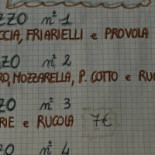 ZZO n° 1
CCIA, FRIARIELLI e PROVOLA
ZZO n° 2
RO, MOZZARELLA, P. COTTO e RUC
ZZO n° 3
RIE e RUCOLA 7€
ZZO n° 4